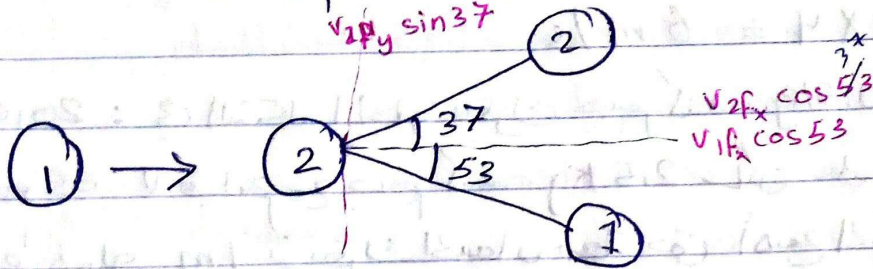 v2fy sin37
2
3x
v2fx cos 53
37
v1fx cos53
1
2
53
1